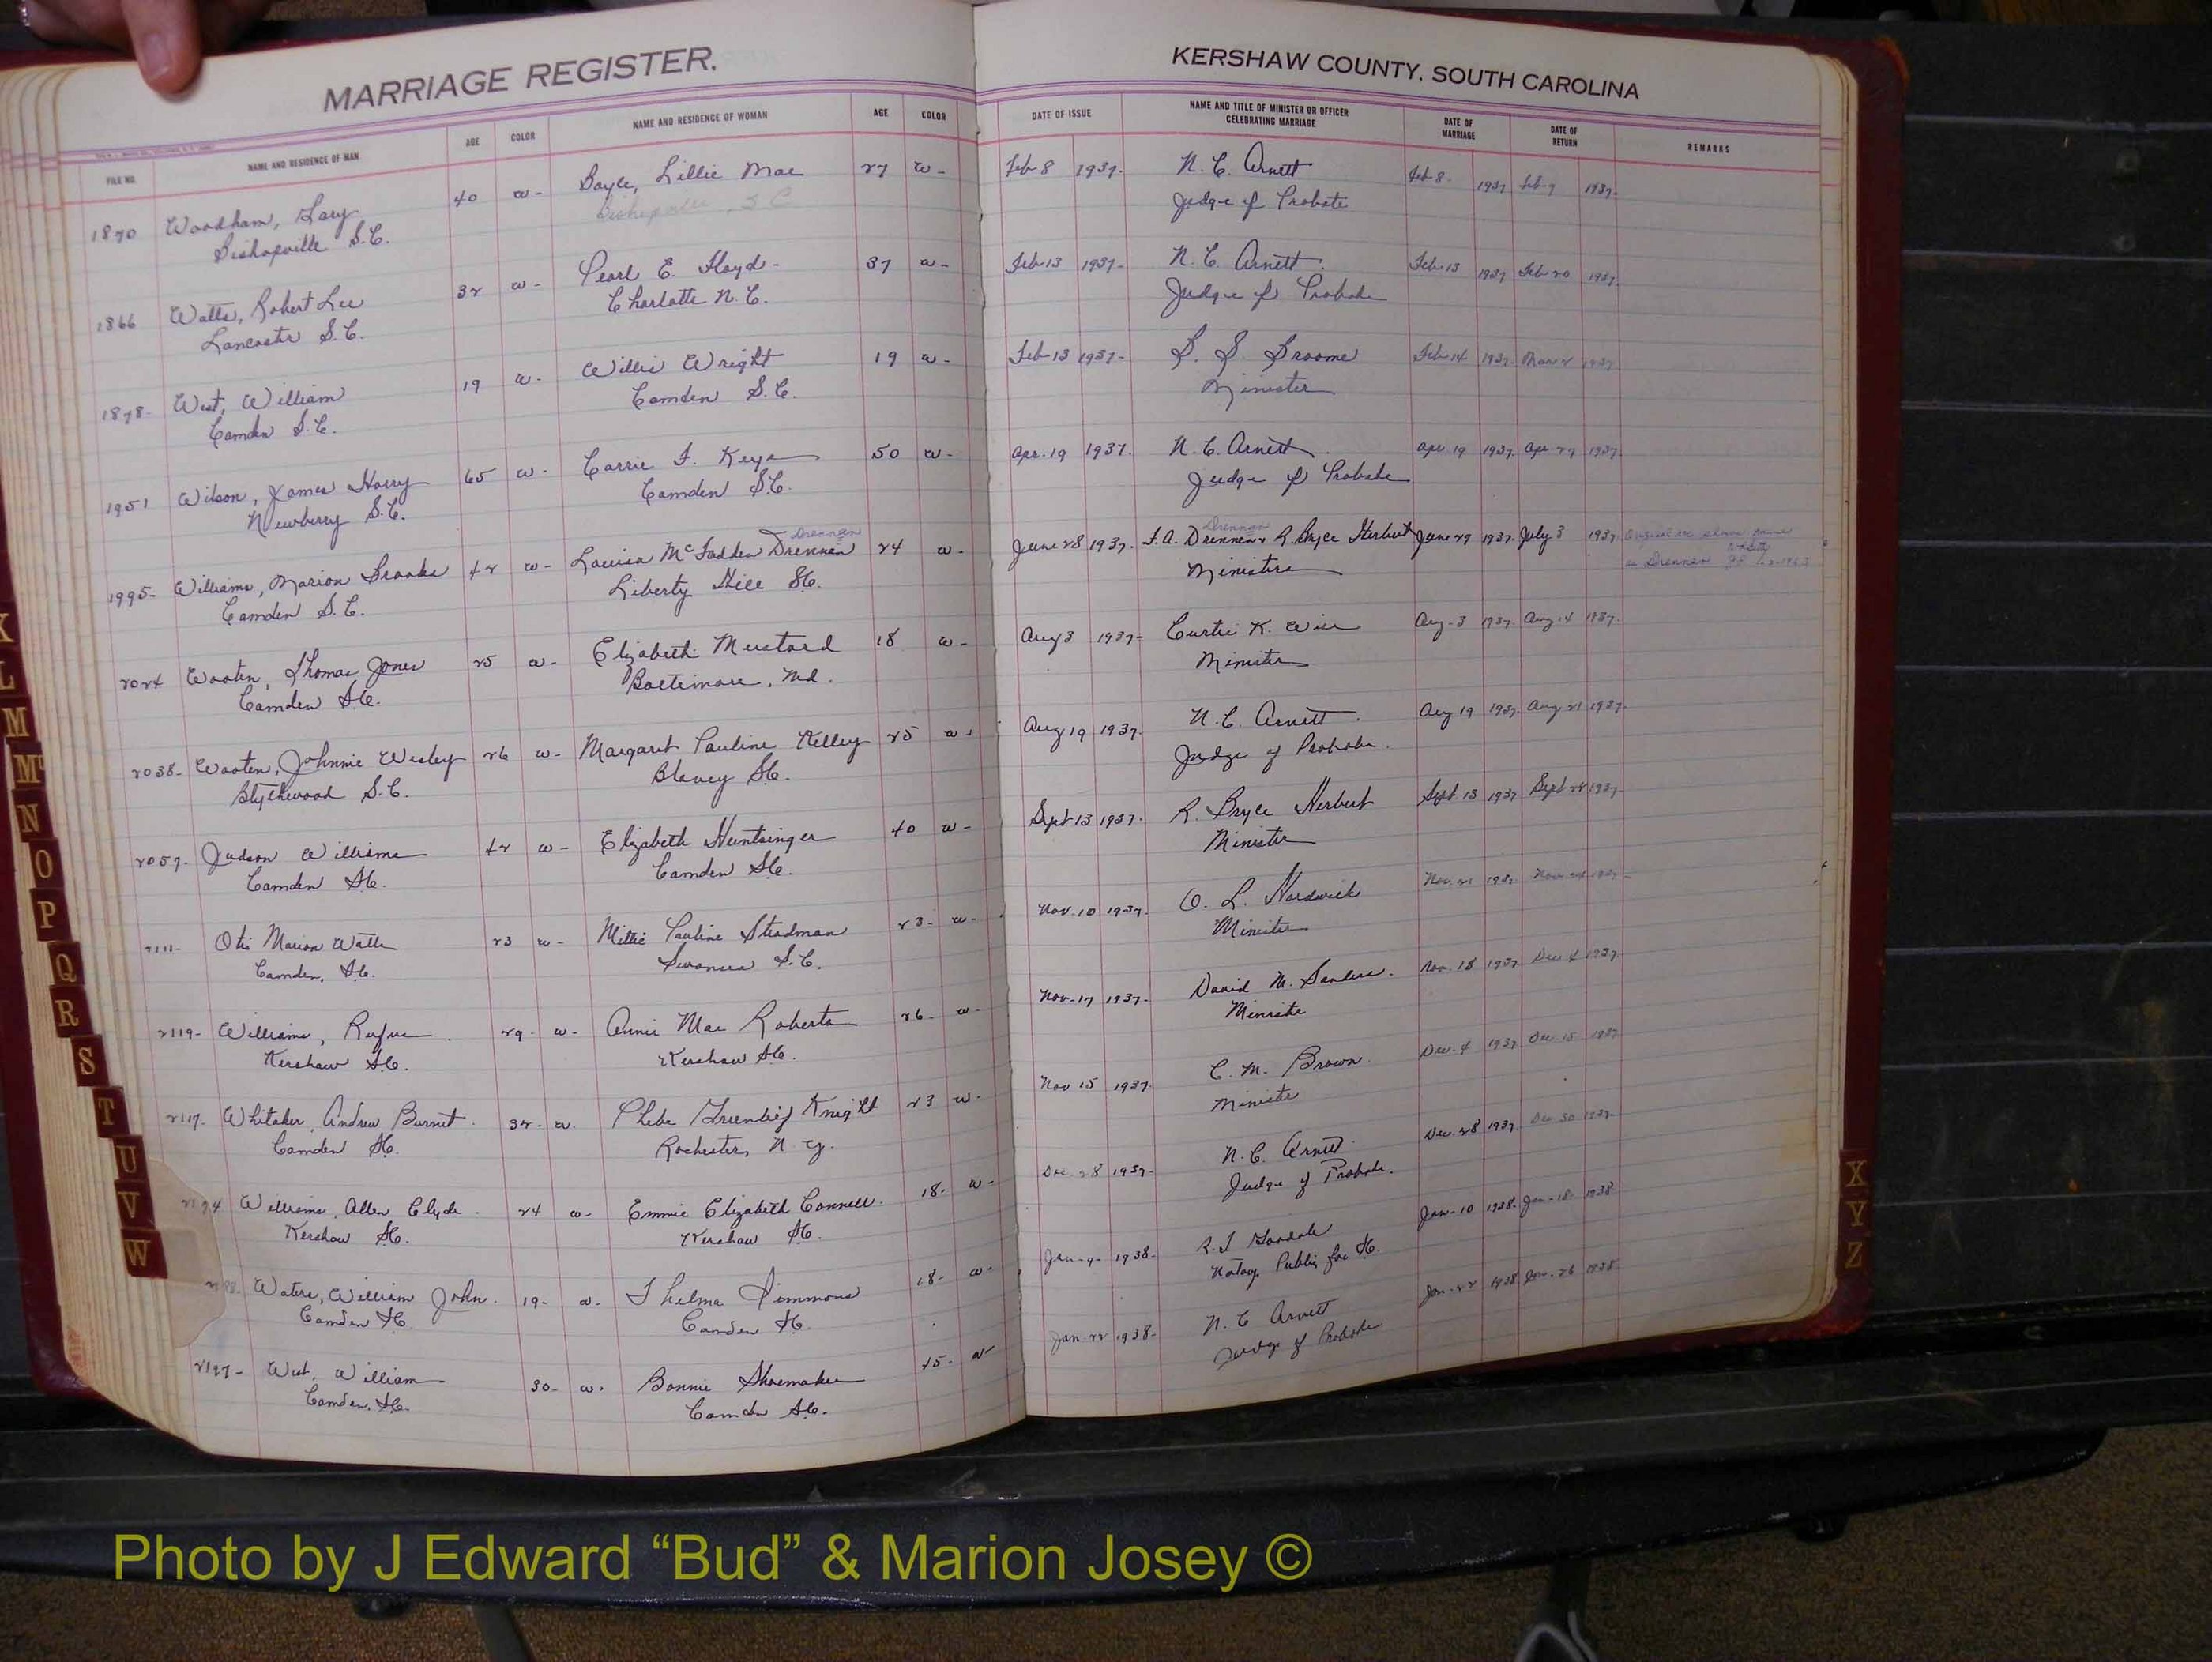 MARRIAGE REGISTER.
FILE NO. NAME AND RESIDENCE OF MAN AGE COLOR NAME AND RESIDENCE OF WOMAN AGE COLOR
1870 Woodham, Gary 40 w- Boyle, Lillie Mae 27 w-
Bishopville S.C. Bishopville, S C
1866 Watts, Robert Lee 32 w- Pearl E. Floyd- 37 w-
Lancaster S.C. Charlotte N.C.
1878- West, William 19 w- Willie Wright 19 w-
Camden S.C. Camden S.C.
1951 Wilson, James Harry 65 w- Carrie F. Keys 50 w-
Newberry S.C. Camden S.C.
Drennan
1995- Williams, Marion Brooks 42 w- Louisa McFadden Drennen 24 w-
Camden S.C. Liberty Hill SC.
2024 Wooten, Thomas Jones 25 w- Elizabeth Mustard 18 w-
Camden SC. Baltimore, Md.
2038- Wooten, Johnnie Wesley 26 w- Margaret Pauline Kelley 25 w-
Blythewood S.C. Blaney SC.
2057- Judson Williams 42 w- Elizabeth Huntsinger 40 w-
Camden SC. Camden SC.
2111- Otis Marion Watts 23 w- Mittie Pauline Steadman 23- w-
Camden, SC. Swansea S.C.
2119- Williams, Rufus 29- w- Annie Mae Roberts 26- w-
Kershaw SC. Kershaw SC.
2117- Whitaker, Andrew Burnet 32- w. Phebe Knight 23 w-
Camden SC. Rochester, N.Y.
Williams, Allen Clyde 24 w- Emmie Elizabeth Connell 18- w-
Kershaw SC. Kershaw SC.
Waters, William John. 19- w- Thelma Simmons 18- w-
Camden SC Camden SC.
2197- West, William 30- w. Bonnie Shoemaker 25- w-
Camden, SC. Camden SC.
KERSHAW COUNTY, SOUTH CAROLINA
DATE OF ISSUE NAME AND TITLE OF MINISTER OR OFFICER CELEBRATING MARRIAGE DATE OF MARRIAGE DATE OF RETURN REMARKS
Feb 8 1937- N. C. Arnett Feb 8- 1937 Feb-9 1937-
Judge of Probate
Feb 13 1937- N. C. Arnett Feb 13 1937 Feb 20 1937
Judge of Probate
Feb 13 1937- Broome Feb 14 1937- Mar 2 1937
Minister
Apr. 19 1937. N. C. Arnett Apr 19 1937 Apr 27 1937
Judge of Probate
Drennan
June 28 1937. F. A. Drennen & R Bryce Herbert June 29 1937 July 3 1937
Ministers
Aug 3 1937- Curtis K. Wise Aug-3 1937 Aug 14 1937-
Minister
Aug 19 1937- N. C. Arnett Aug 19 1937- Aug 21 1937-
Judge of Probate
Sept 13 1937- R. Bryce Herbert Sept 13 1937 Sept 28 1937
Minister
Nov. 10 1937- O. L. Hardwick Nov. 21 1937 Nov. 24 1937
Minister
Nov-17 1937- David M. Sanders. Nov. 18 1937 Dec 4 1937
Minister
Nov 15 1937 C. M. Brown Dec. 4 1937 Dec 15 1937
Minister
Dec. 28 1937- N. C. Arnett Dec. 28 1937 Dec 30 1937
Judge of Probate
Jan-9- 1938- R. J Goodale Jan-10 1938- Jan-18- 1938
Notary Public for SC.
Jan. 22 1938- N. C Arnett Jan-22 1938 Jan. 26 1938
Judge of Probate
K
L
M
Mc
N
O
P
Q
R
S
T
U
V
W
X
Y
Z
Photo by J Edward “Bud” & Marion Josey ©